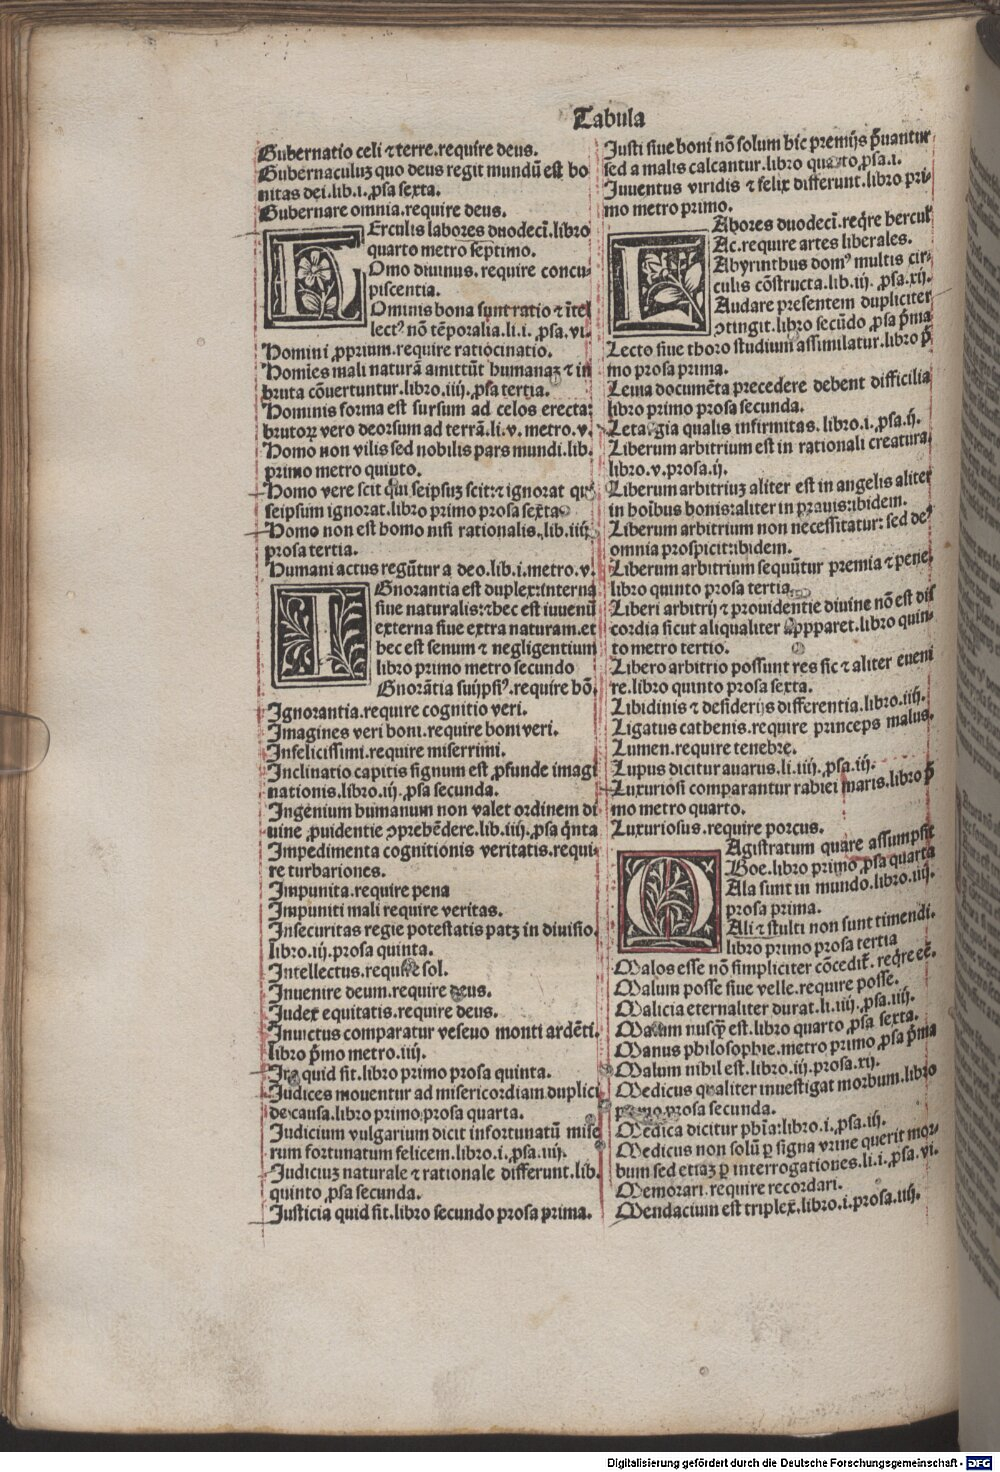 Tabula
Gubernatio celi ⁊ terre.require deus.
Gubernaculuꝫ quo deus regit mundū est bo
nitas dei.lib.i.ꝓsa sexta.
Gubernare omnia.require deus.
HErculis labores duodecī.libro
quarto metro septimo.
Omo diuinus.require concu-
piscentia.
Ominis bona sunt ratio ⁊ ītel
lectꝰ nō tēporalia.li.i.ꝓsa.vi.
Homini ꝓprium.require ratiocinatio.
Homīes mali naturā amittūt humanaꝫ ⁊ in
bruta cōuertuntur.libro.iiij.ꝓsa tertia.
Hominis forma est sursum ad celos erecta:
brutoꝝ vero deorsum ad terrā.li.v.metro.v.
Homo non vilis sed nobilis pars mundi.lib.
primo metro quinto.
Homo vere scit qui seipsuꝫ scit:⁊ ignorat qui
seipsum ignorat.libro primo prosa sexta.
Homo non est homo nisi rationalis.lib.iiij.
prosa tertia.
Humani actus regūtur a deo.lib.i.metro.v.
IGnorantia est duplex:interna
siue naturalis:⁊ hec est iuuenū
externa siue extra naturam.et
hec est senum ⁊ negligentium
libro primo metro secundo
Gnorātia suijpsiꝰ.require hō.
Ignorantia.require cognitio veri.
Imagines veri boni.require boni veri.
Infelicissimi.require miserrimi.
Inclinatio capitis signum est ꝓfunde imagi
nationis.libro.iij.ꝓsa secunda.
Ingenium humanum non valet ordinem di
uine ꝓuidentie ꝯprehēdere.lib.iiij.ꝓsa q̄nta
Impedimenta cognitionis veritatis.requi-
re turbariones.
Impunita.require pena
Impuniti mali require veritas.
Insecuritas regie potestatis patꝫ in diuisio.
libro.iij.prosa quinta.
Intellectus.require sol.
Inuenire deum.require deus.
Iudex equitatis.require deus.
Inuictus comparatur veseuo monti ardēti.
libro p̄mo metro.iiij.
Ira quid sit.libro primo prosa quinta.
Iudices mouentur ad misericordiam duplici
de causa.libro primo prosa quarta.
Iudicium vulgarium dicit infortunatū mise
rum fortunatum felicem.libro.i.ꝓsa.iiij.
Iudiciuꝫ naturale ⁊ rationale differunt.lib.
quinto ꝓsa secunda.
Iusticia quid sit.libro secundo prosa prima.
Iusti siue boni nō solum hic premijs p̄uantur
sed a malis calcantur.libro quarto ꝓsa.i.
Iuuentus viridis ⁊ felix differunt.libro pri-
mo metro primo.
LAbores duodecī.reqͥre hercul
Ac.require artes liberales.
Abyrinthus domꝰ multis cir-
culis cōstructa.lib.iij.ꝓsa.xij.
Audare presentem dupliciter
ꝯtingit.libro secūdo ꝓsa p̄ma
Lecto siue thoro studium assimilatur.libro p̄
mo prosa prima.
Leuia documēta precedere debent difficilia
libro primo prosa secunda.
Letargia qualis infirmitas.libro.i.ꝓsa.ij.
Liberum arbitrium est in rationali creatura.
libro.v.prosa.ij.
Liberum arbitriuꝫ aliter est in angelis aliter
in hoībus bonis:aliter in prauis:ibidem.
Liberum arbitrium non necessitatur: sed deꝰ
omnia prospicit:ibidem.
Liberum arbitrium sequūtur premia ⁊ pene
libro quinto prosa tertia.
Liberi arbitrij ⁊ prouidentie diuine nō est dis
cordia sicut aliqualiter appparet.libro quin-
to metro tertio.
Libero arbitrio possunt res sic ⁊ aliter eueni
re.libro quinto prosa sexta.
Libidinis ⁊ desiderijs differentia.libro.iiij.
Ligatus cathenis.require princeps malus.
Lumen.require tenebre.
Lupus dicitur auarus.li.iiij.ꝓsa.iij.
Luxuriosi comparantur rabiei maris.libro p̄
mo metro quarto.
Luxuriosus.require porcus.
MAgistratum quare assumpsit
Boe.libro primo ꝓsa quarta
Ala sunt in mundo.libro.iiij.
prosa prima.
Ali ⁊ stulti non sunt timendi.
libro primo prosa tertia
Malos esse nō simpliciter cōcedit̄.reqͥre eē.
Malum posse siue velle.require posse.
Malicia eternaliter durat.li.iiij.ꝓsa.iiij.
Malum nusqͣ est.libro quarto ꝓsa sexta.
Manus philosophie.metro primo ꝓsa p̄ma
Malum nihil est.libro.iij.prosa.xij.
Medicus qualiter inuestigat morbum.libro
primo prosa secunda.
Medica dicitur phīa:libro.i.ꝓsa.iij.
Medicus non solū ꝑ signa vrine querit mor-
bum sed etiaꝫ ꝑ interrogationes.li.i.ꝓsa.vi.
Memorari.require recordari.
Mendacium est triplex.libro.i.prosa.iiij.
Digitalisierung gefördert durch die Deutsche Forschungsgemeinschaft - DFG